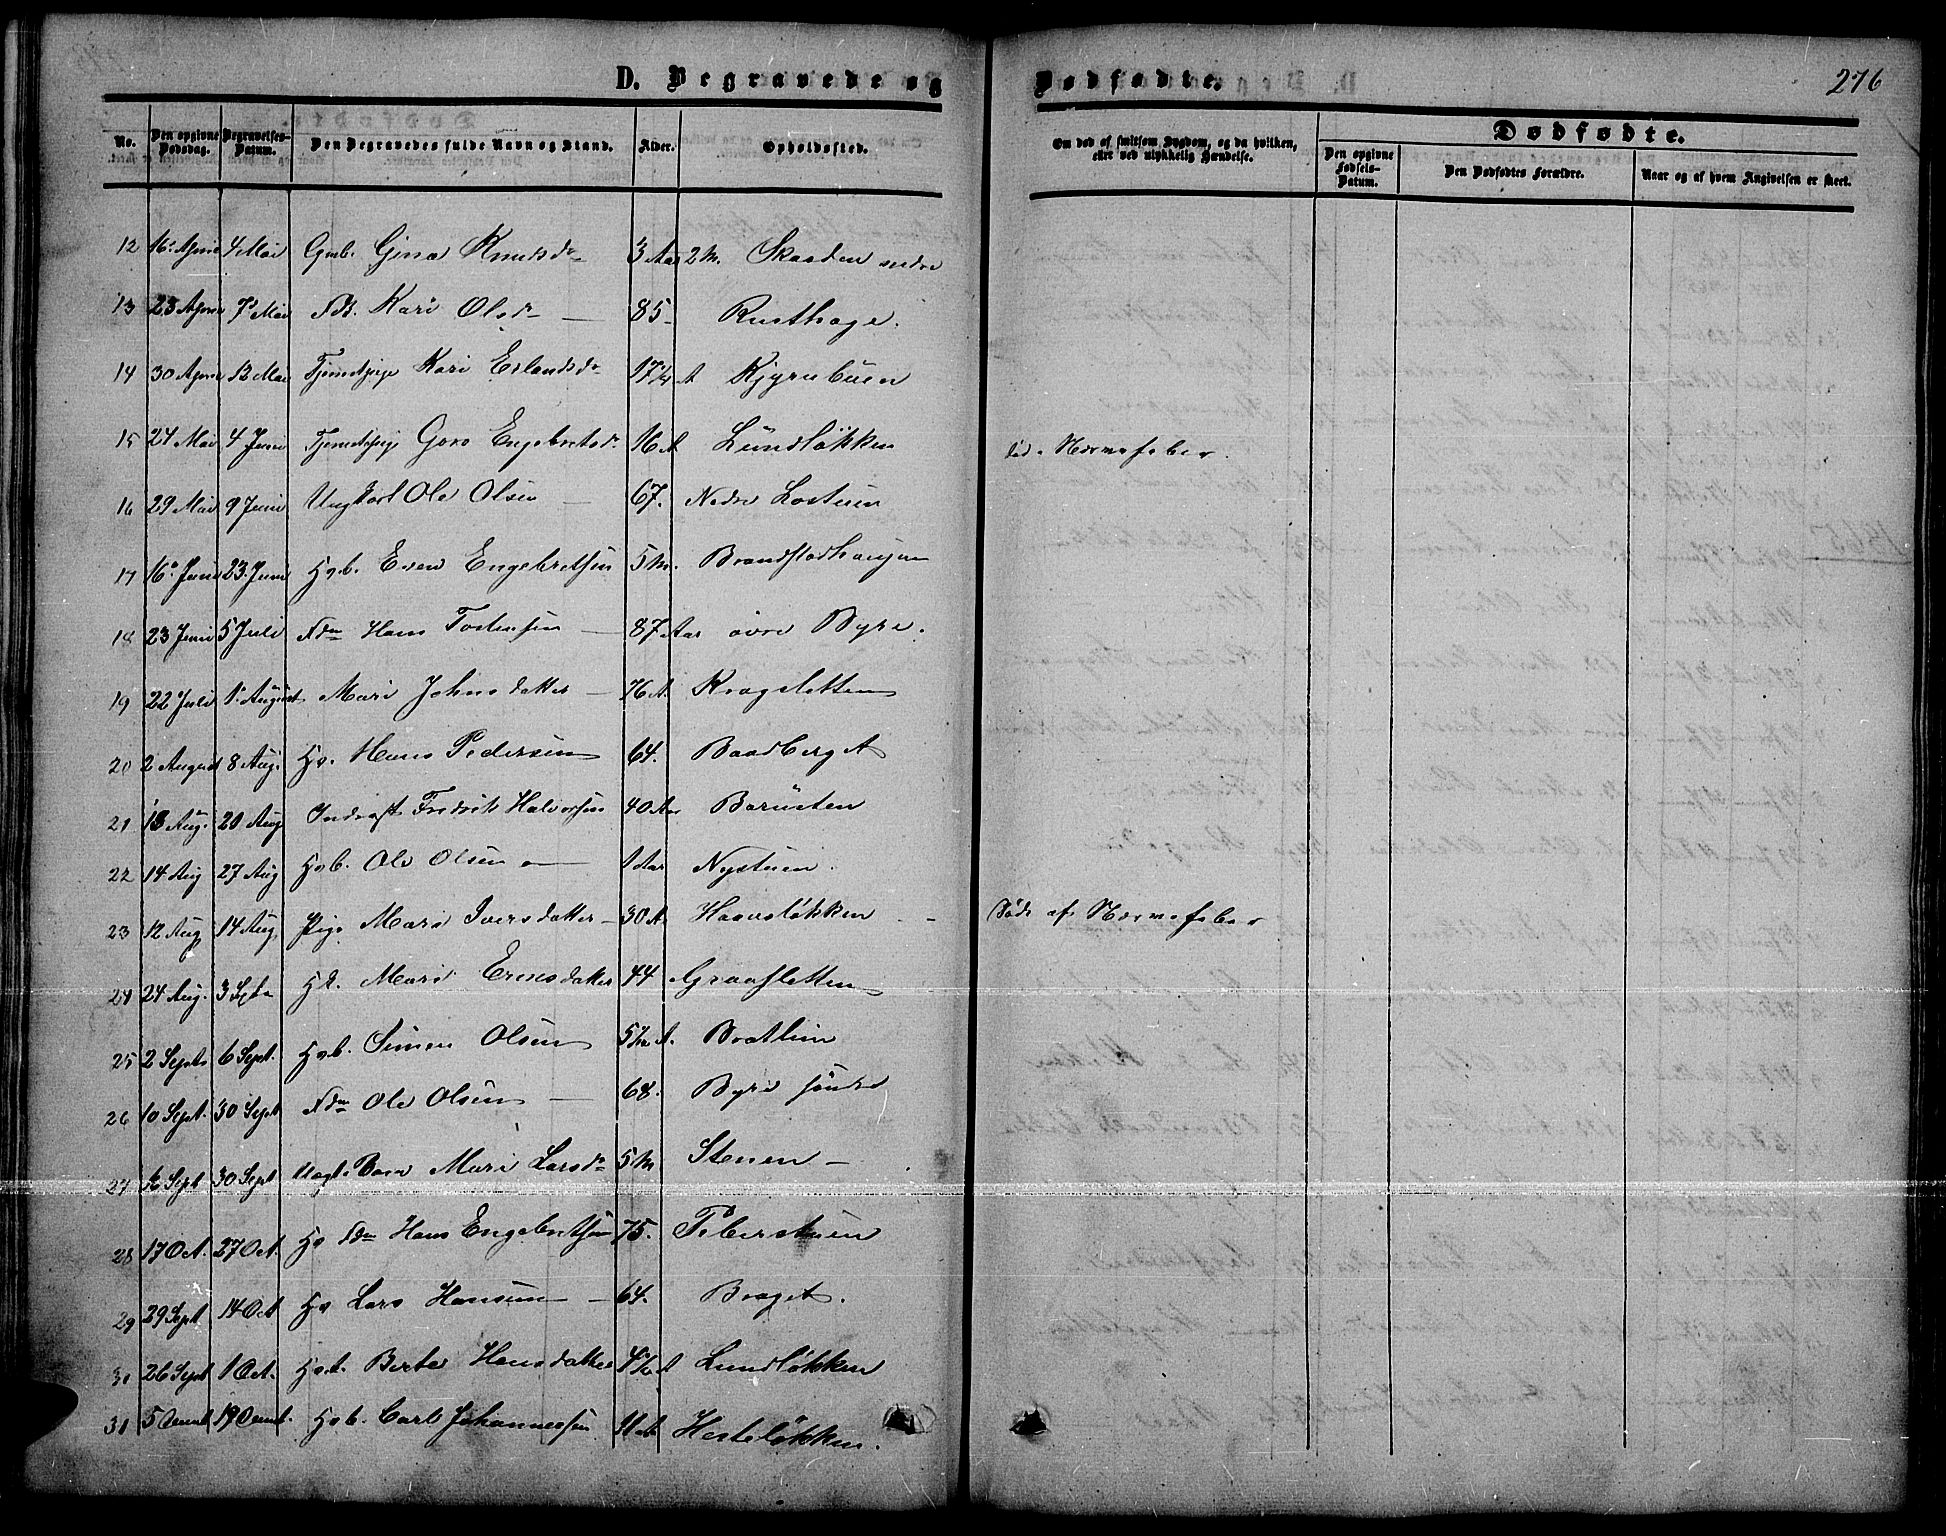 D. Begravede og Dødfødte.
276
No. Den opgivne Dødsdag. Begravelses-Datum. Den Begravedes fulde Navn og Stand. Alder. Opholdssted. Om død af smitsom Sygdom, og da hvilken, eller ved ulykkelig Hændelse. Dødfødte. Den opgivne Fødsels-Datum. Den Dødfødtes Forældre. Naar og af hvem Angivelsen er skeet.
12 16 April 4 Mai Gmb. Gina Knudsdr 3 Aar 2 M. Skaaden nedre
13 23 April 7 Mai Kari Olsdr — 85 Rusthage.
14 30 April 12 Mai Tjenestepige Kari Erlandsdr 17 A
15 24 Mai 4 Juni Tjenestepige Goro Engebretsdr 16 A Lundløkken død Nervefeber.
16 29 Mai 9 Juni Ungkarl Ole Olsen — 67. Nedre
17 16 Juni 23 Juni Hgb. Even Engebretsen 5 M. Brandstadhaugen
18 23 Juni 5 Juli Fdm Hans Tostensen — 87 Aar øvre Byre.
19 22 Juli 1 August Mari Johnsdatter — 76 A. Kragsletten
20 2 August 8 Aug. Hans Pedersen 64. Baadberget
21 13 Aug. 20 Aug Inderst Fredrik Halvorsen 40 Aar Barusten
22 14 Aug 27 Aug Hgb. Ole Olsen — 1 Aar Nystuen.
23 12 Aug 14 Aug Pige Mari Iversdatter — 30 A Haavsløkken — Døde af Nervefeber
24 24 Aug. 3 Septr Mari 44 Graasletten
25 2 Septr 6 Sept. Hgb. Simen Olsen Bratlien
26 10 Sept. 30 Sept Fdm Ole Olsen — 68. Byre søndre
27 16 Sept 30 Sept Mari Larsdr 5 M Stenen —
28 17 Oct. 27 Oct. Fdm Hans Engebretsen 75. Piberstuen
29 29 Sept 14 Oct Lars Hansen — 64. Braget.
31 26 Sept 1 Oct. Berte Hansdatter Lundløkken
31 5 19 Hgb. Carl Johannessen 11 Hesteløkken.